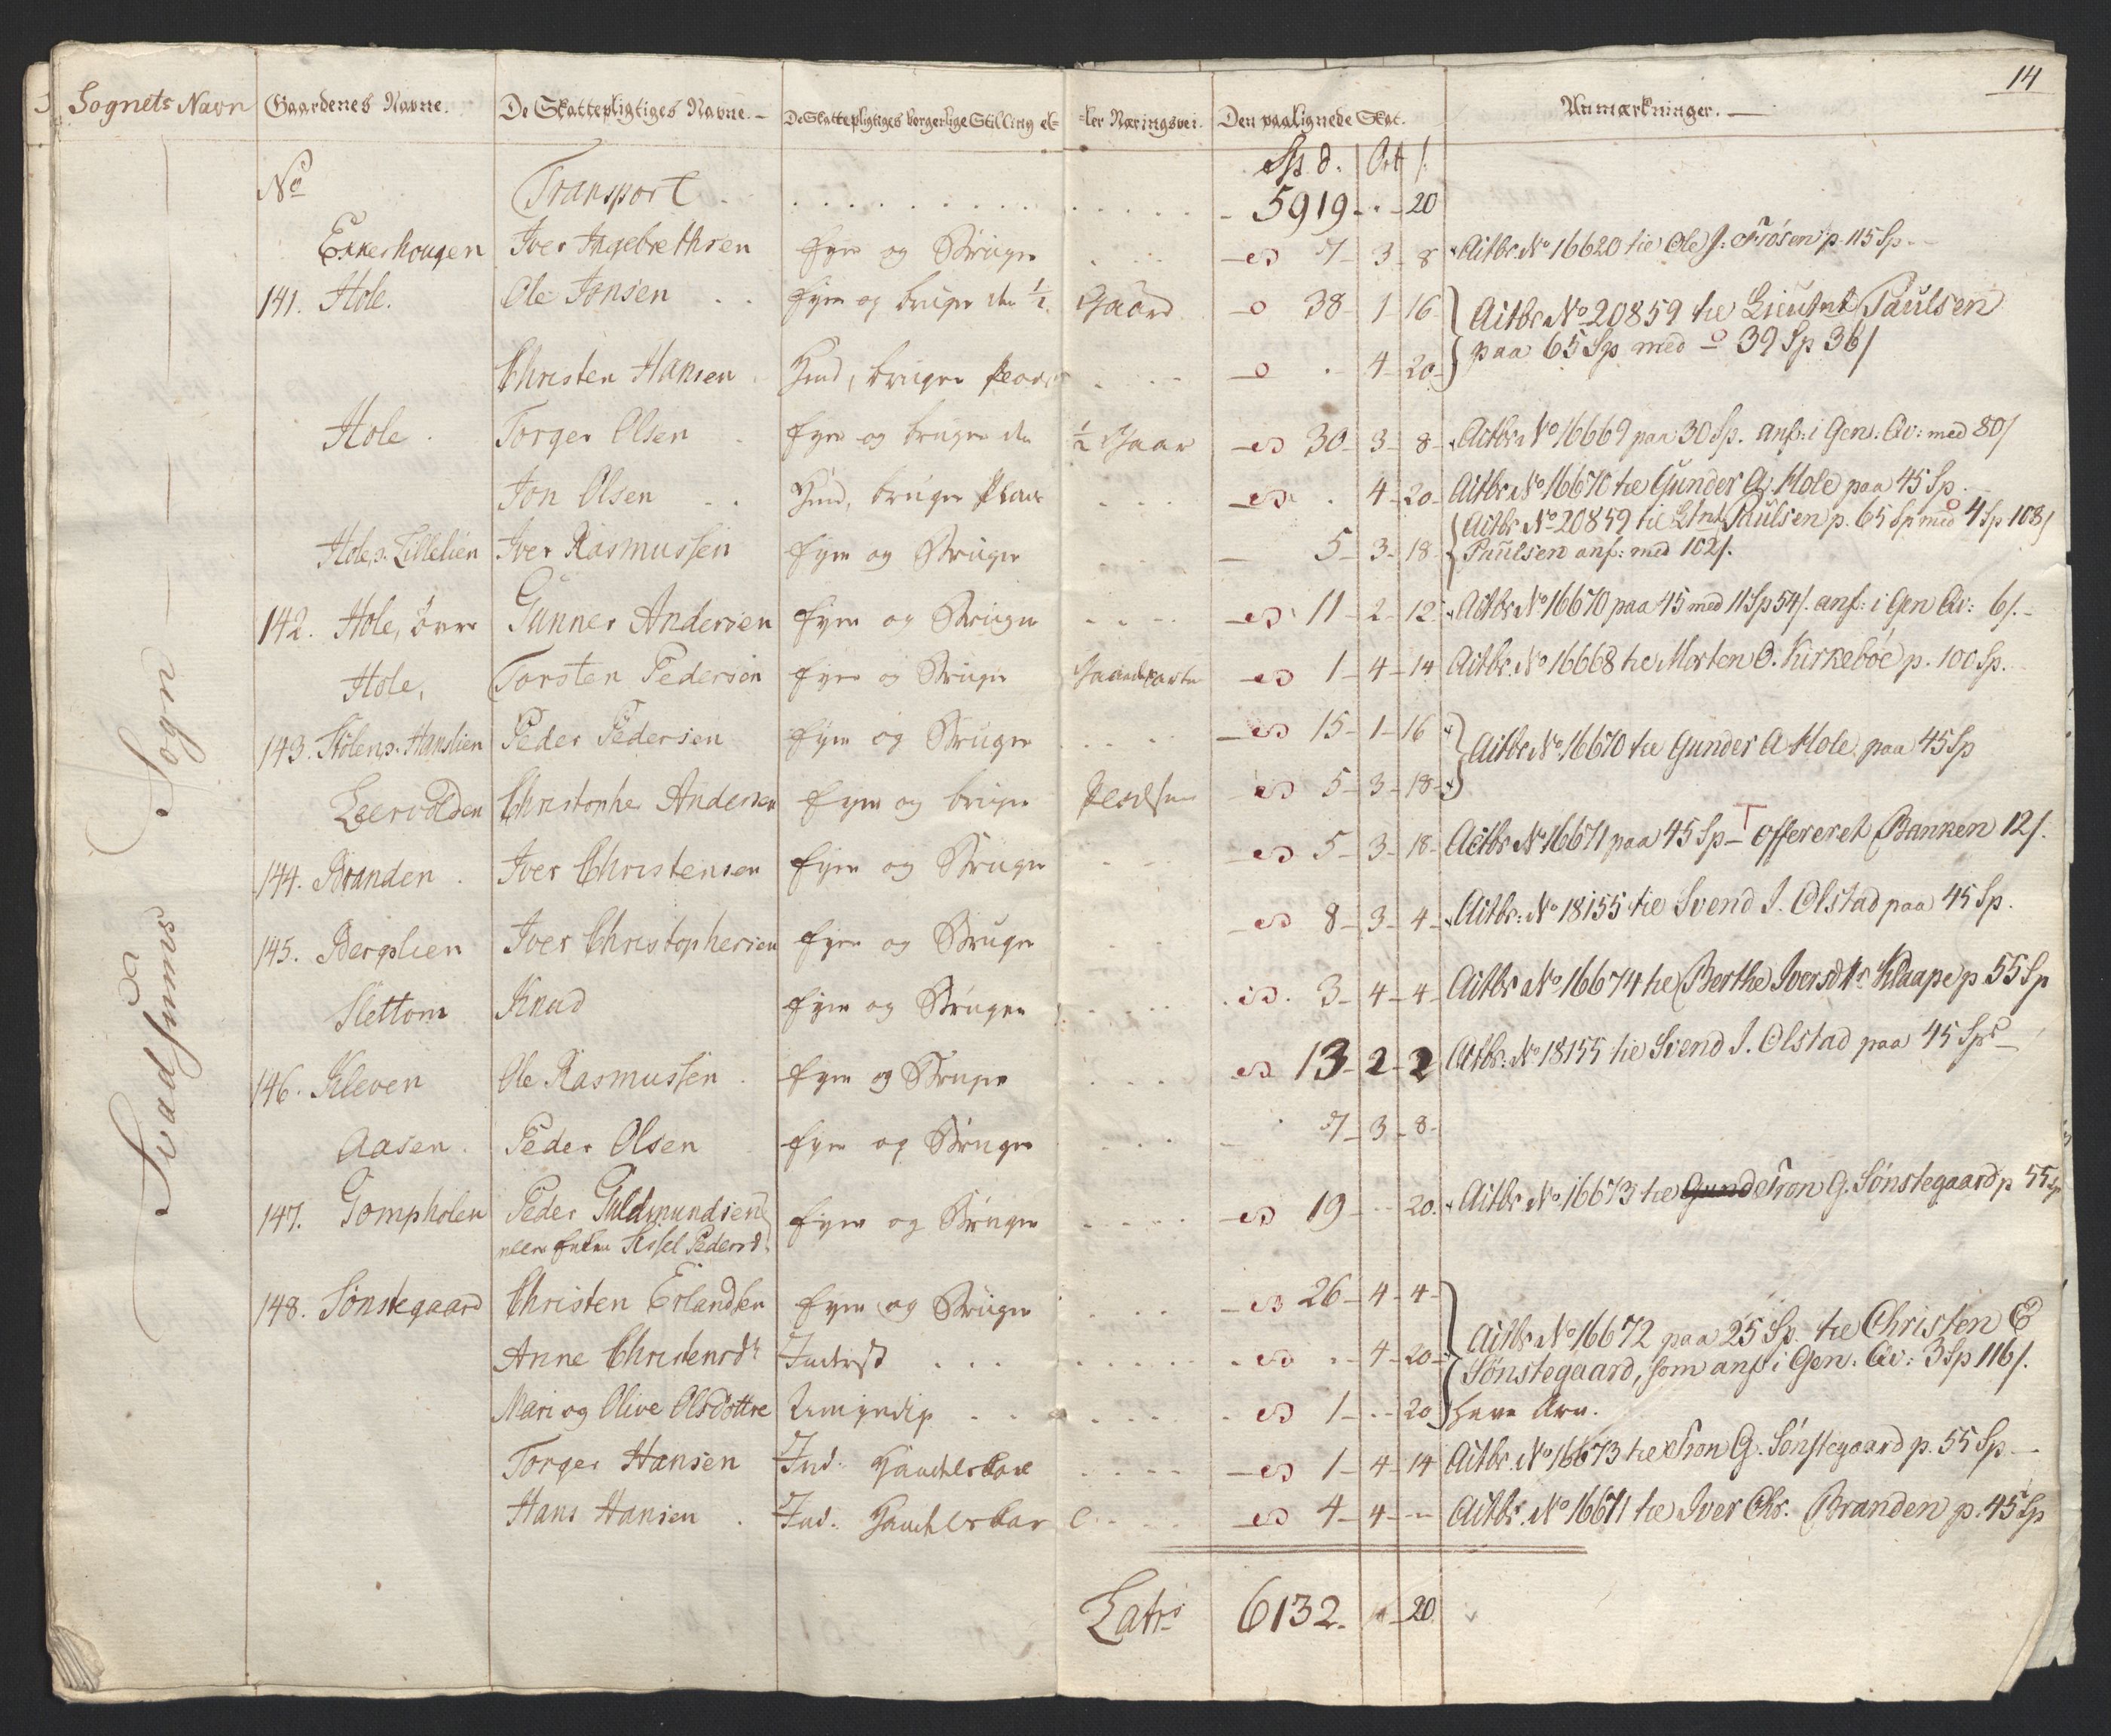 14
Sognets Navn Gaardenes Navne. De Skattepligtiges Navne. De Skattepligtiges borgerlige Stilling el- -ler Næringsvei. Den paalignede Skat. Anmærkninger.
Svadsums Sogn
Sp. d. Ort /.
No Transport 5919 - 20
Ekkerhougen Iver Ingebrethsen Eyer og Bruger 7 - 3 - 8 Aitbr. No 16620 til Ole J. p. 115 Sp.
141. Hole. Ole Jonsen Eyer og bruger den 1/2 Gaard 38 - 1 - 16 Aitbr No 20859 til Lieutnt Paulsen
Christen Hansen Huusd, bruger Plads 4 - 20 paa 65 Sp med 39 Sp 36/
Hole Torger Olsen Eyer og bruger den 1/2 Gaar 30 - 3 - 8 Aitbr No 16669 paa 30 Sp. anf: i Gen: Qv: med 80/
Jon Olsen Huusd, bruger Plads 4 - 20 Aitbr No 16670 til Gunder A. Hole paa 45 Sp.
Aitbr No 20859 til Ltnt Paulsen p. 65 Sp med 4 Sp 108/
Hole, Lillelien Iver Rasmussen Eyer og Bruger 5 - 3 - 18 Paulsen anf: med 102/.
142. Hole, övre Gunner Andersen Eyer og Bruger 11 - 2 - 12 Aitbr No 16670 paa 45 med 11 Sp 54/. anf: i Gen Qv: 6/.
Hole, Torsten Pedersen Eyer og Bruger 1 - 4 - 14 Aitbr. No 16668 til Morten O. Kirkeböe p. 100 Sp.
143. Hanslien Peder Pedersen Eyer og Bruger 15 - 1 - 16 Aitbr No 16670 til Gunder A Hole paa 45 Sp
Leervolden Christopher Andersen Eyer og bruger 5 - 3 - 18
144. Branden Iver Christensen Eyer og Bruger 5 - 3 - 18 Aitbr No 16671 paa 45 Sp - offereret Banken 12/.
145. Berglien Iver Christophersen Eyer og Bruger 8 - 3 - 4 Aitbr: No 18155 til Svend J. Olstad paa 45 Sp.
Slettom Knud Eyer og Bruger 3 - 4 - 4 Aitbr No 16674 til Berthe Iversdtr Klaape p. 55 Sp
146. Kleven Ole Rasmussen Eyer og Bruger 13 - 2 - 2 Aitbr: No 18155 til Svend J. Olstad paa 45 Sp
Aasen Peder Olsen Eyer og Bruger 7 - 3 - 8
147. Gompholen Peder Guldmundsen Eyer og Bruger 19 - 20 Aitbr No 16673 til Gunde Tron G. Sönstegaard p 55 Sp
eller Enken Sissel Pedersd.
148. Sönstegaard Christen Erlandsen Eyer og Bruger 26 - 4 - 4
Anne Christensdtr Inderst 4 - 20 Aitbr No 16672 paa 25 Sp. til Christen E
Sönstegaard, som anf: i Gen: Qv: 3 Sp 116/.
Mari og Olive Olsdöttre Umyndig 1 - 20
Torger Hansen Ind. 1 - 4 - 14 Aitbr. No 16673 til Tron G. Sönstegaard p. 55 Sp.
Hans Hansen Ind. 4 - 4 Aitbr. No 16671 til Iver Chr. Branden p. 45 Sp
Latr: 6132 - 20